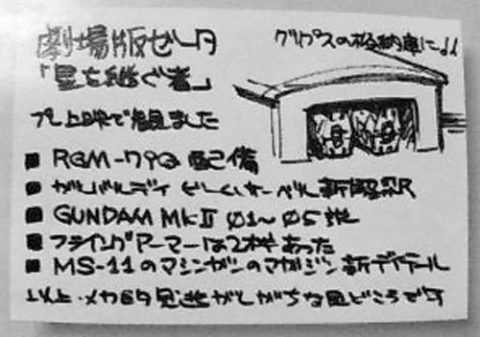 劇場版ゼータ
「星を継ぐ者」
グリプスの格納庫に↓↓
プレ上映で拝見しました
■ RGM-79Q 配備
■ ガルバルディ 新解釈
■ GUNDAM MkⅡ 01～05
■ フライングアーマーは2機あった
■ MS-11のマシンガンのマガジン新ディテール
以上・メカ的見逃がしがちな見どころです